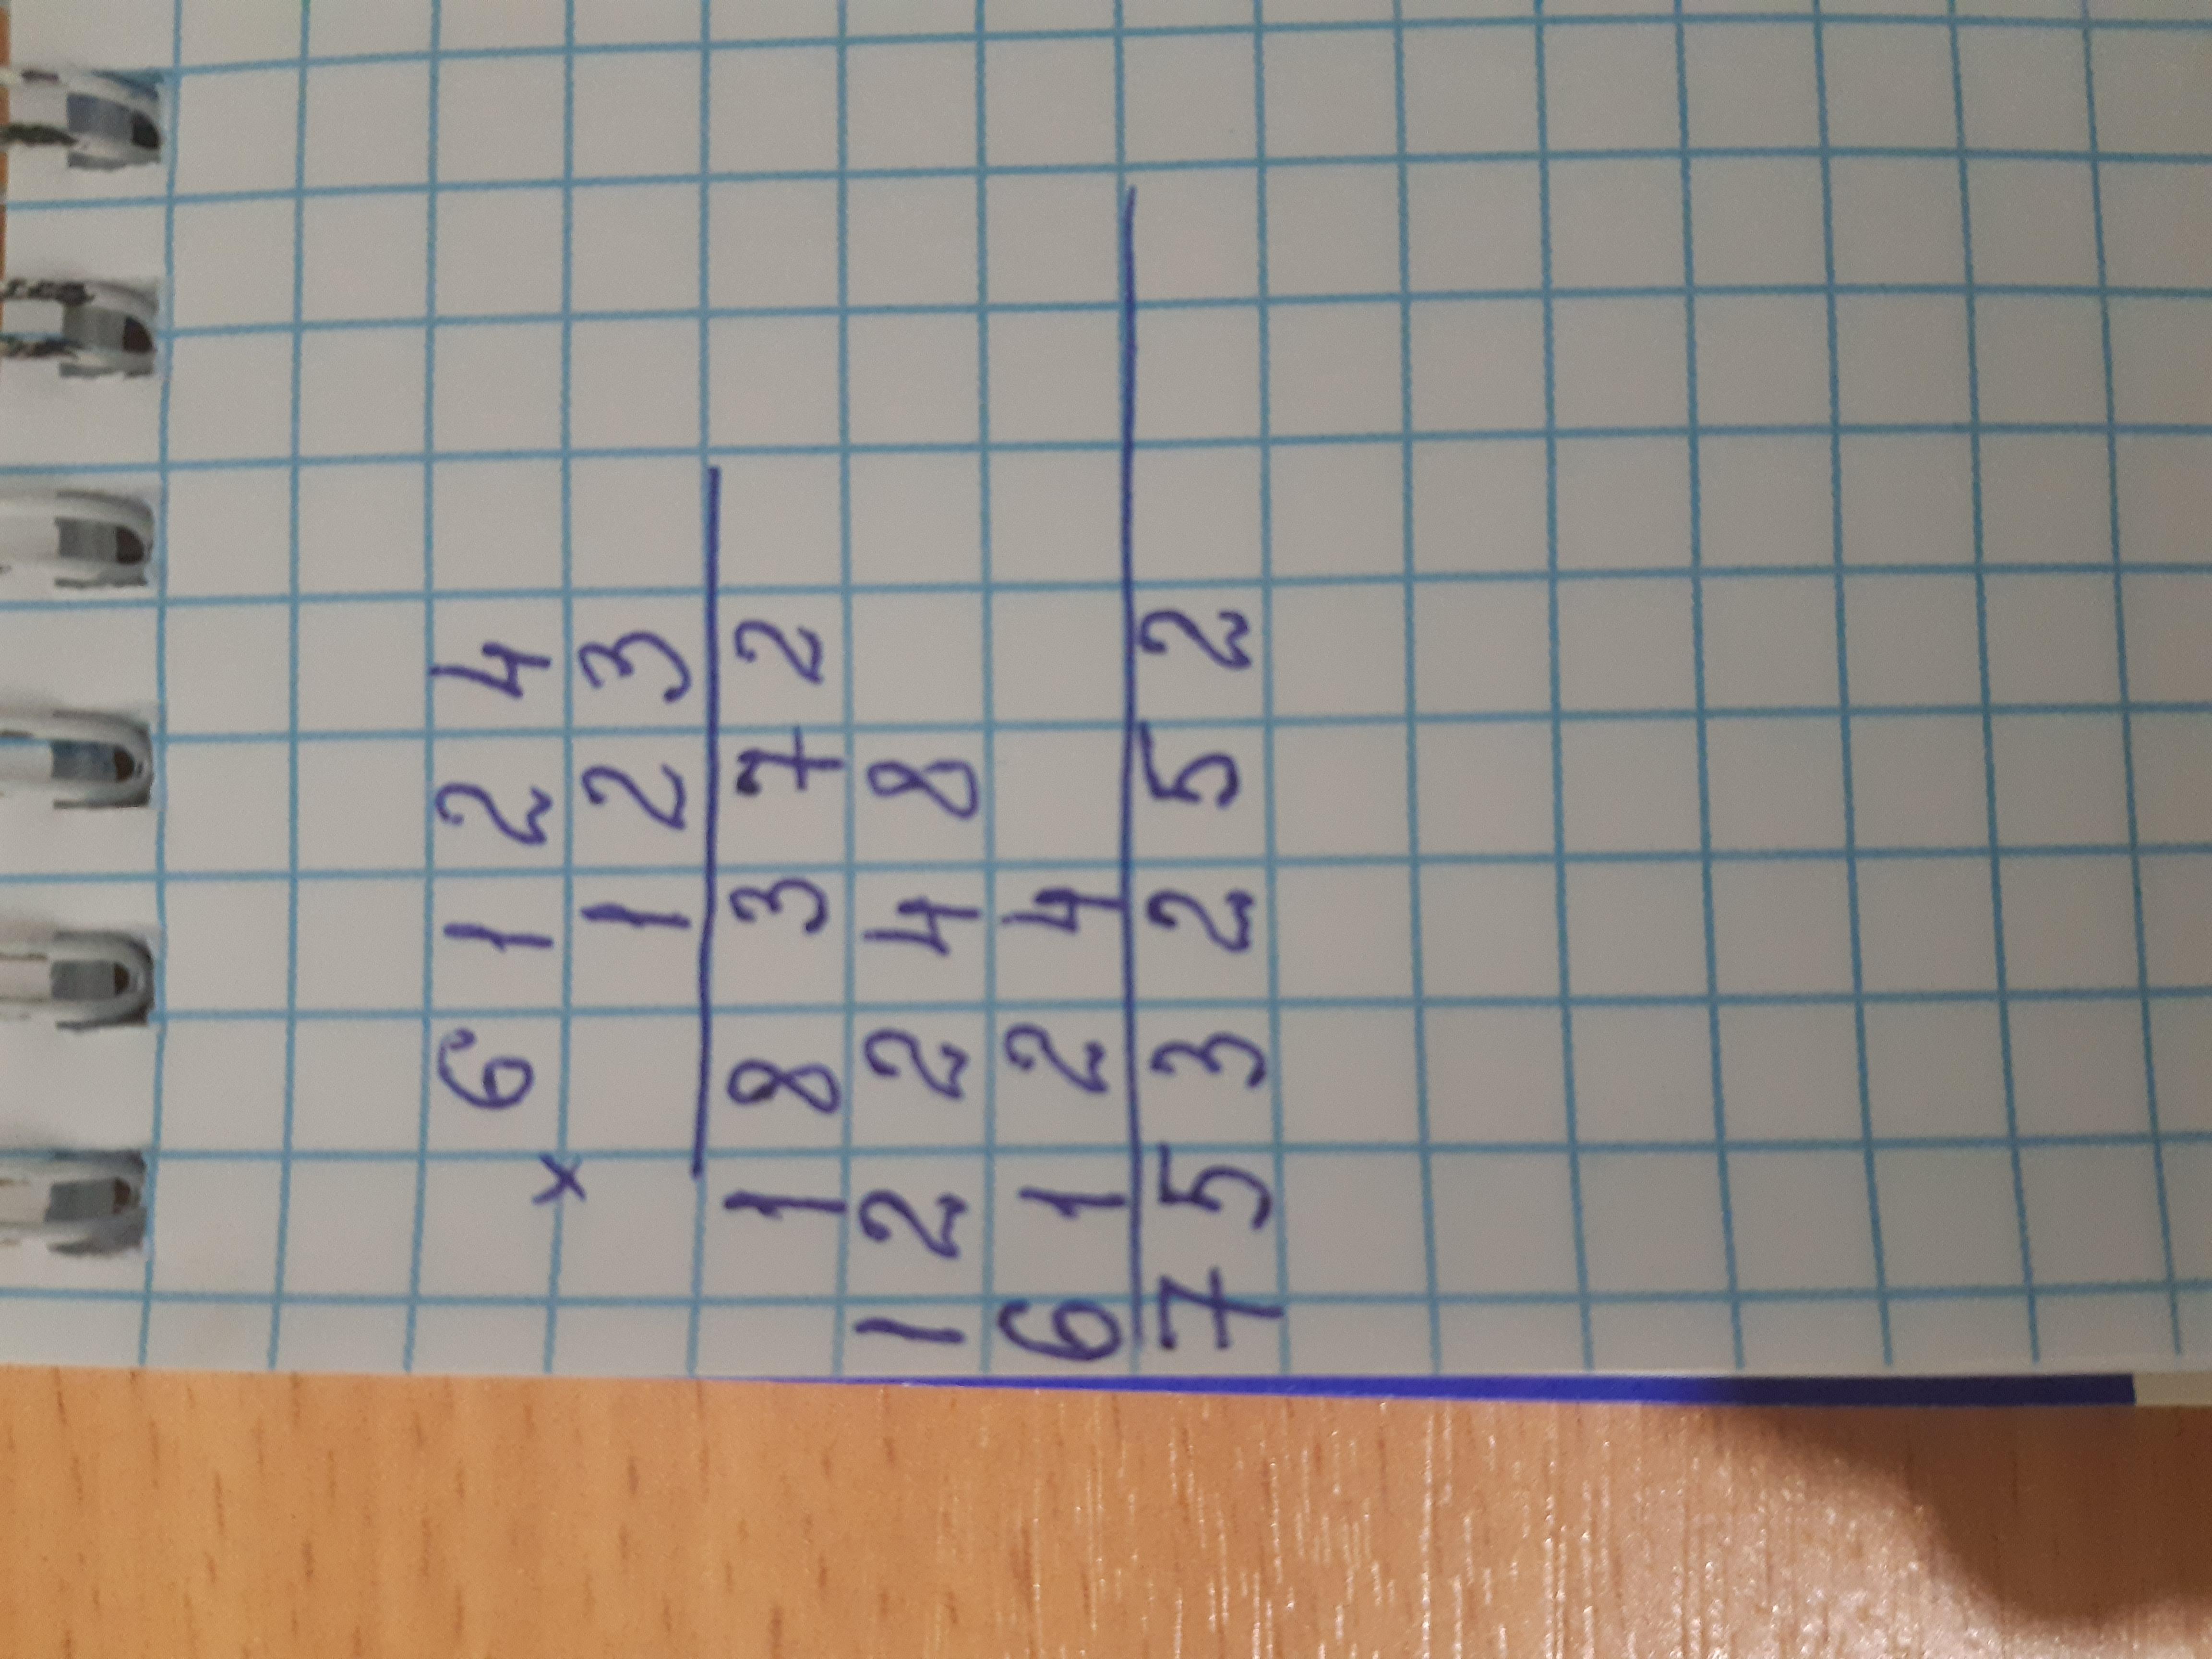 6124
×
123
18372
12248
6124
753252